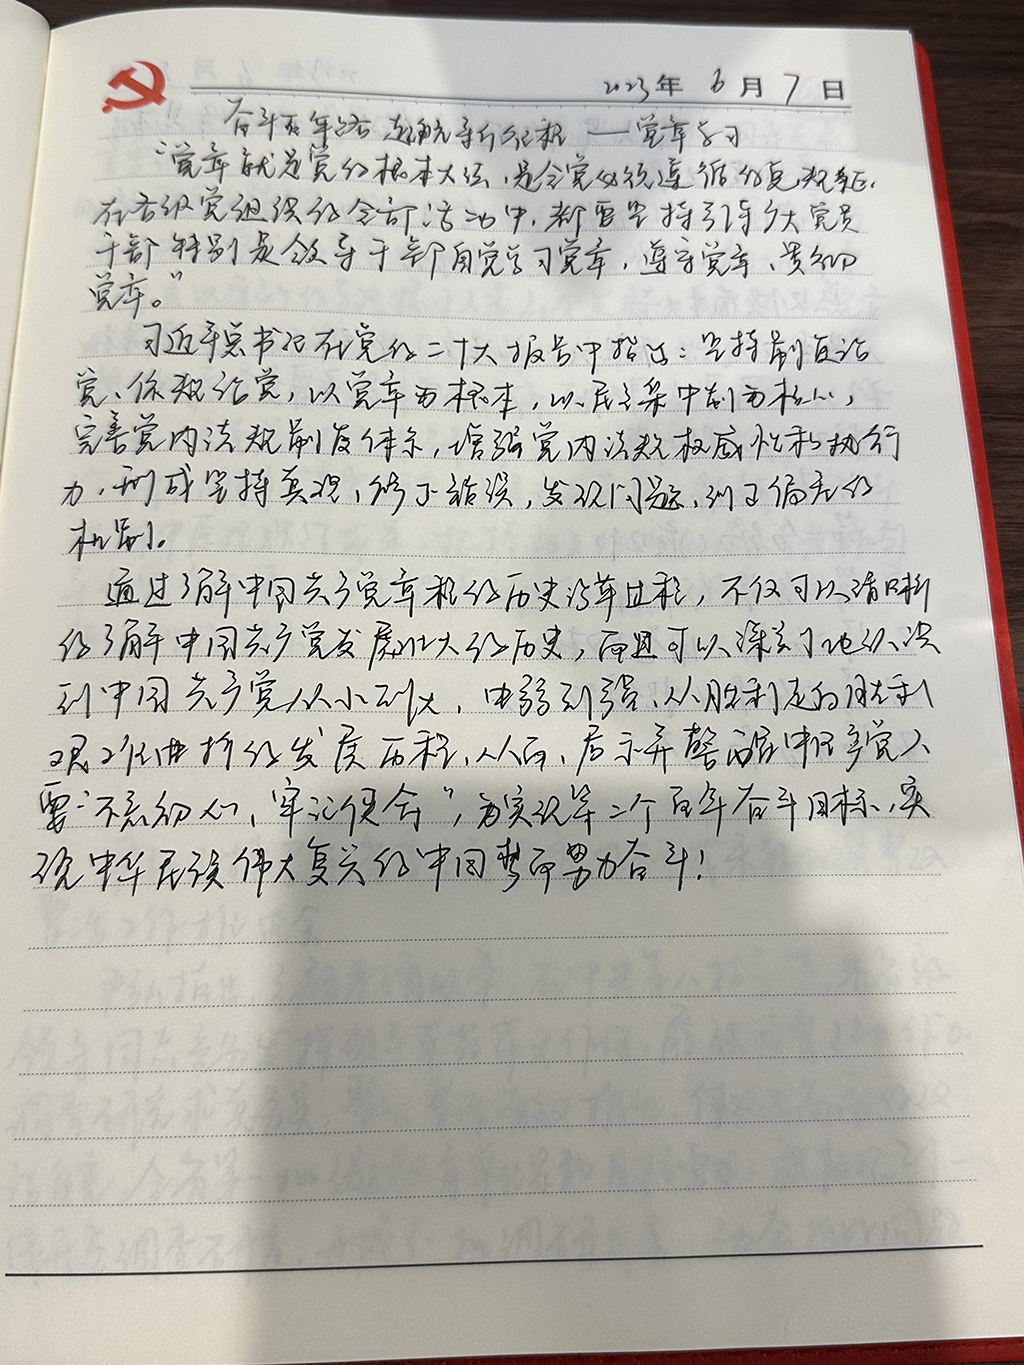 2023年 6月 7日
奋斗百年路 起航新征程 —— 党章学习
“党章就是党的根本大法,是全党必须遵循的总规矩。
在各级党组织的全部活动中,都要坚持引导广大党员
干部特别是领导干部自觉学习党章、遵守党章、贯彻
党章。”
习近平总书记在党的二十大报告中指出:坚持制度治
党、依规治党,以党章为根本,以民主集中制为核心,
完善党内法规制度体系,增强党内法规权威性和执行
力,形成坚持真理、修正错误,发现问题、纠正偏差的
机制。
通过了解中国共产党章程的历史沿革过程,不仅可以清晰
的了解中国共产党发展壮大的历史,而且可以深刻地认识
到中国共产党从小到大,由弱到强、从胜利走向胜利
艰难曲折的发展历程,从而,启示并警醒中国共产党人
要“不忘初心、牢记使命”,为实现第二个百年奋斗目标,实
现中华民族伟大复兴的中国梦而努力奋斗!